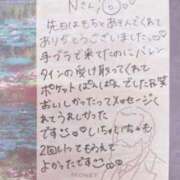 Nさん
先日はもちとあそんでくれて
ありがとうございました
手ブラで来てたのにバレン
タインの受け取ってくれて
ポケットぱんぱんでした笑
おいしかったってメッセージくれ
てうれしかった
です
しいちとかも
2回してもらえて
よかったです
MONEY